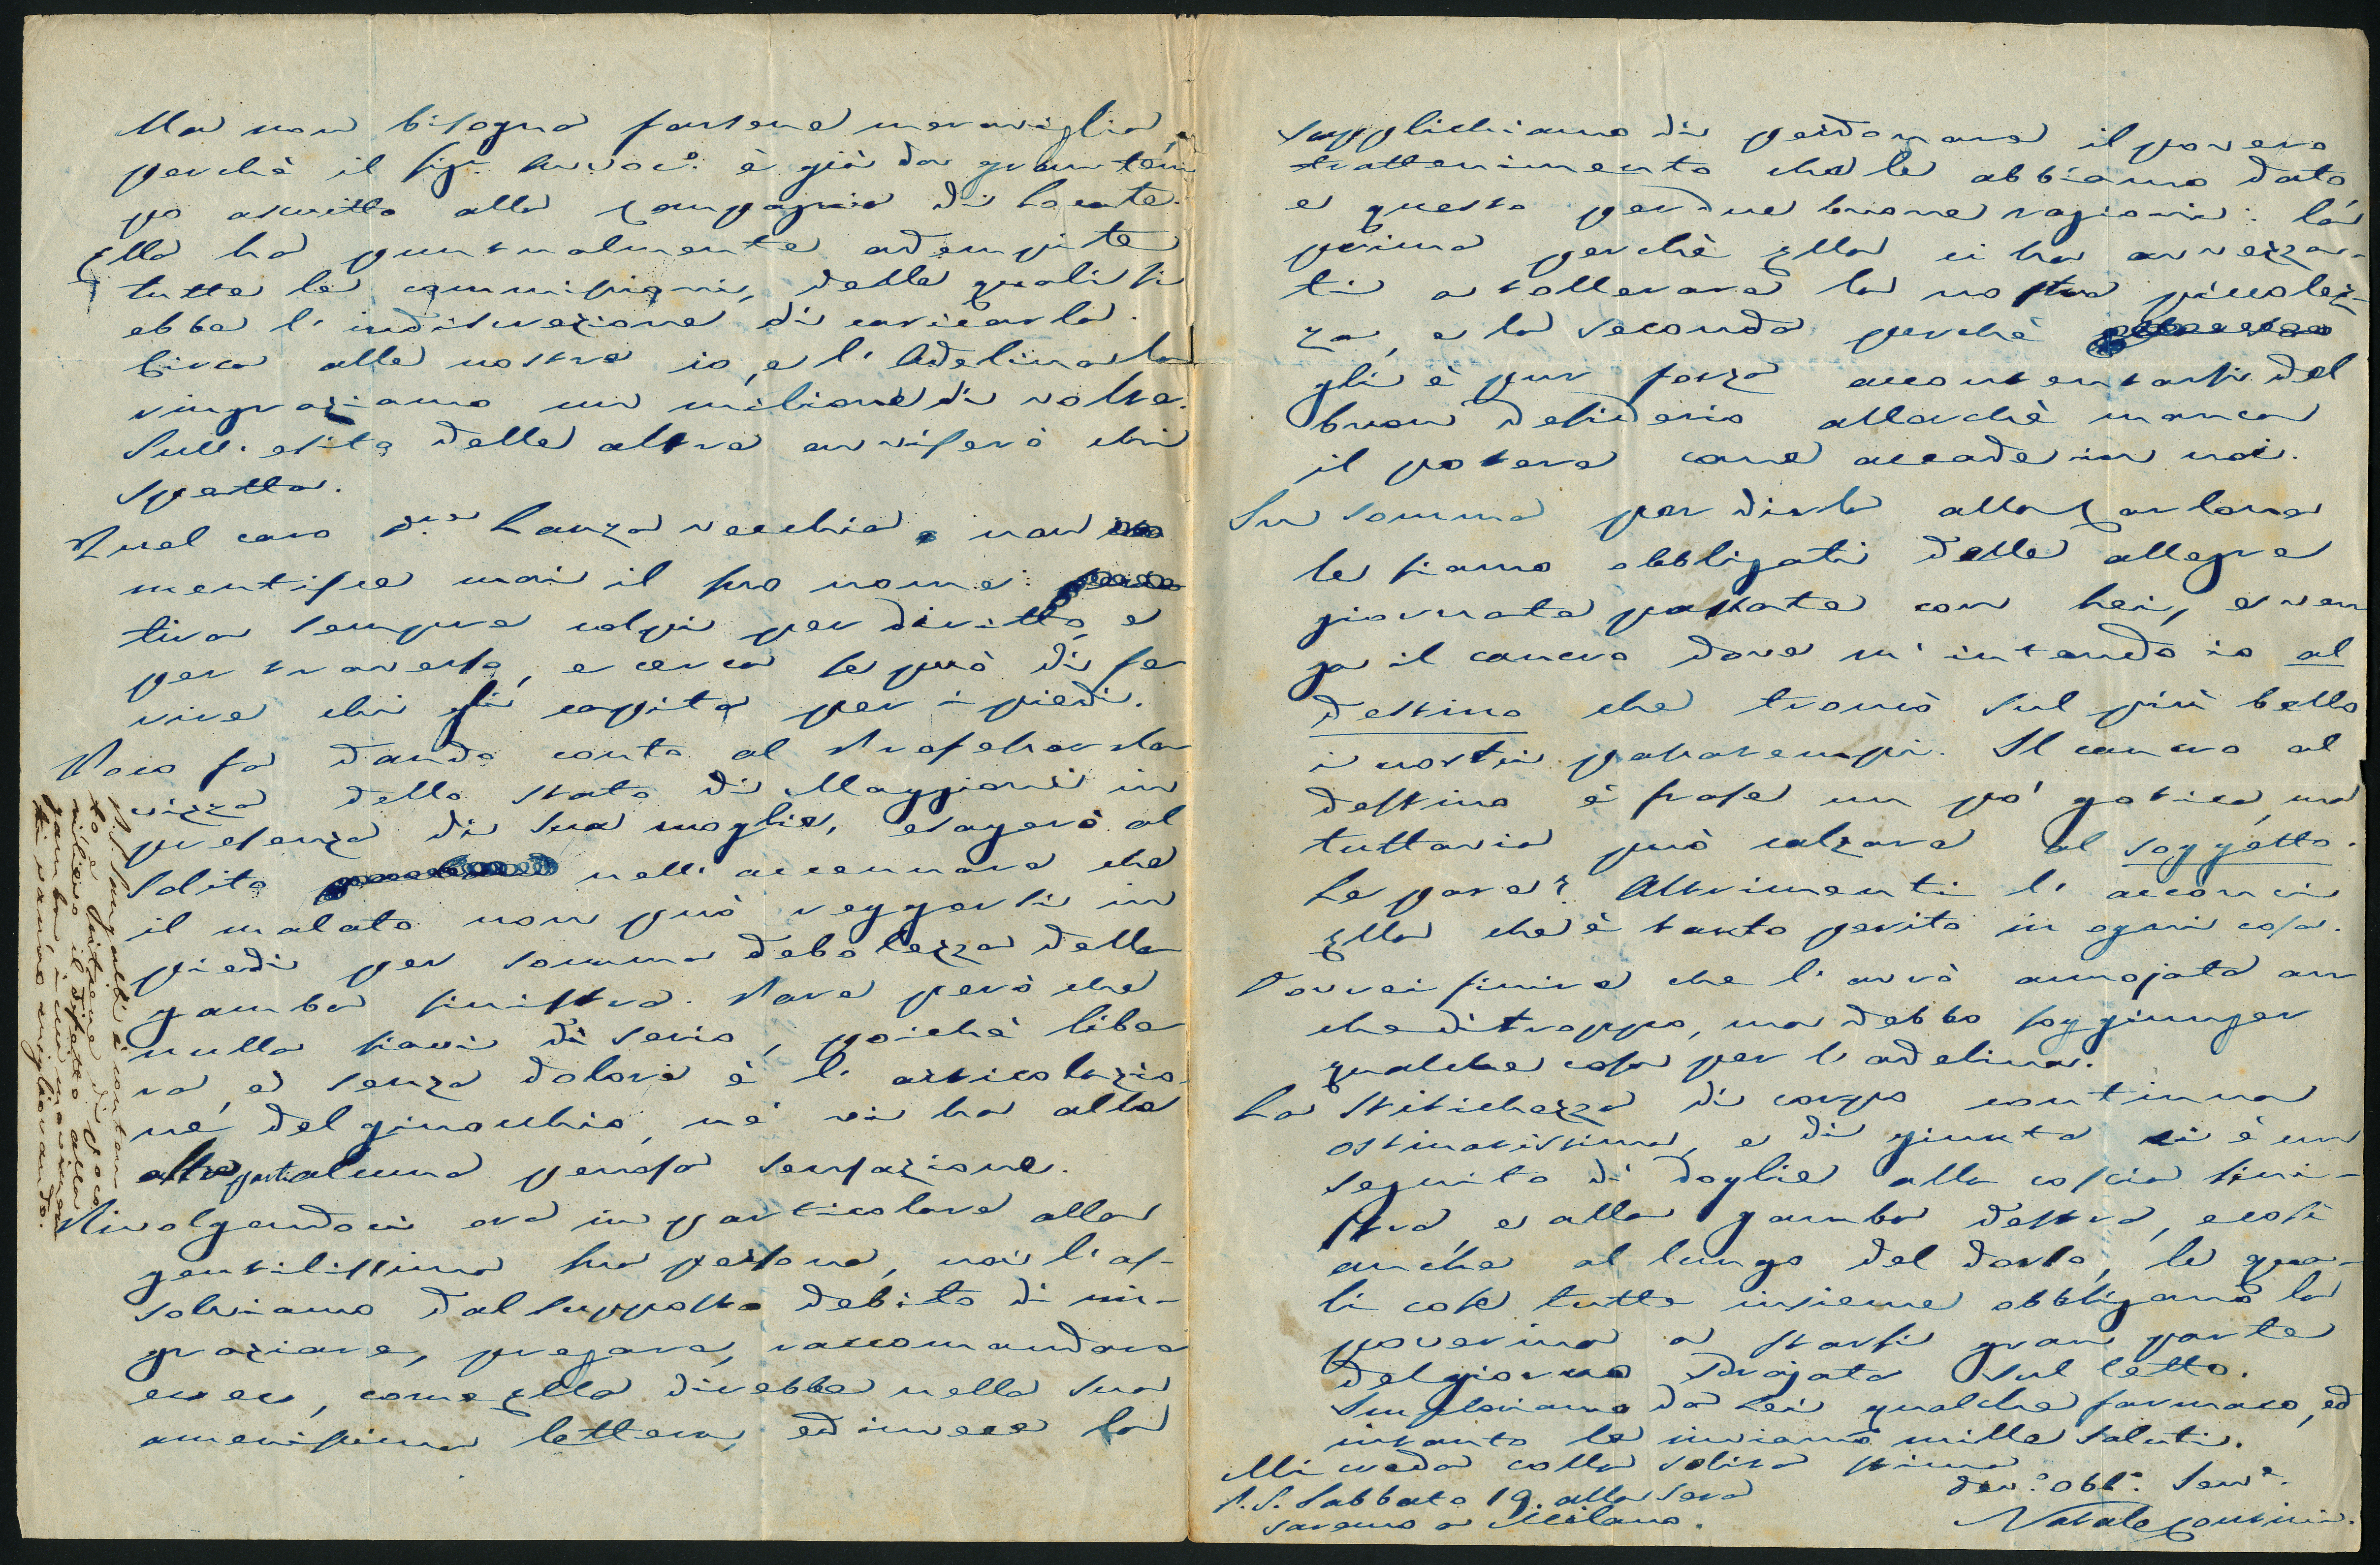 Ma non bisogna farsene meraviglia
perchè il Sigr. Avvoc.o è già da gran tem
po ascritto alla Compagnia di
Ella ha puntualmente adempite
tutte le commissioni, delle quali si
ebbe l'indiscrezione di caricarla.
Circa alle nostre io, e l'Adelina la
ringraziamo un milione di volte.
Sull'esito delle altre avviserò chi
spetta.
Quel caro D.r Lanzavecchia non
mentisce mai il suo nome:
tira sempre colpi per diritto, e
per traverso, e cerca se può di fe
rire chi gli capita per i piedi.
Poco fa dando conto al Professor
dello stato di Maggioni in
presenza di sua moglie, esagerò al
solito nell'accennare che
il malato non può reggersi in
piedi per somma debolezza della
gamba sinistra. Pare però che
nulla siavi di serio, poichè libe
ra, e senza dolore è l'articolazio
ne del ginocchio, nè vi ha alle
altre parti alcuna penosa sensazione.
Rivolgendoci ora in particolare alla
gentilissima sua persona, noi l'as-
solviamo dal supposto debito di rin-
graziare, pregare, raccomandare
ecc ecc, come Ella direbbe nella sua
amenissima lettera, ed invece la
P.S. Sungalli è conten-
to e
il difetto alla
gamba, i cui movimen
ti vanno migliorando.
supplichiamo di perdonare il povero
trattenimento che le abbiamo dato,
e questo per due buone ragioni: la
prima perchè Ella ci ha avvezza-
ti a tollerare la nostra piccolez-
za, e la seconda perchè
gli è pur forza accontentarsi del
buon desiderio allorchè manca
il potere come accade in noi.
In somma per dirla alla Carlona
le siamo obbligati delle allegre
giornate passate con Lei, e ven
ga il cancro dove m'intendo io al
destino che troncò sul più bello
i nostri passatempi. Il cancro al
destino è frase un pó gotica, ma
tuttavia può calzare al soggetto.
Le pare? Altrimenti l'acconci
Ella che è tanto perito in ogni cosa.
Dovrei finire che l'avrò annojata an
che di troppo, ma debbo soggiunger
qualche cosa per l'adelina.
La stitichezza di corpo continua
ostinatissima, e di giunta vi è un
seguito di doglie alla coscia sini-
stra, e alla gamba destra, e così
anche al lungo del dorso, le qua-
li cose tutte insieme obbligano la
poverina a starsi gran parte
del giorno sdrajata sul letto.
Imploriamo da Lei qualche farmaco, ed
intanto le inviamo mille saluti.
Mi creda colla solita stima
Dev.o Obb.o Serv.e
Natale Contini.
P.S. Sabbato 19. alla sera
saremo a Milano.